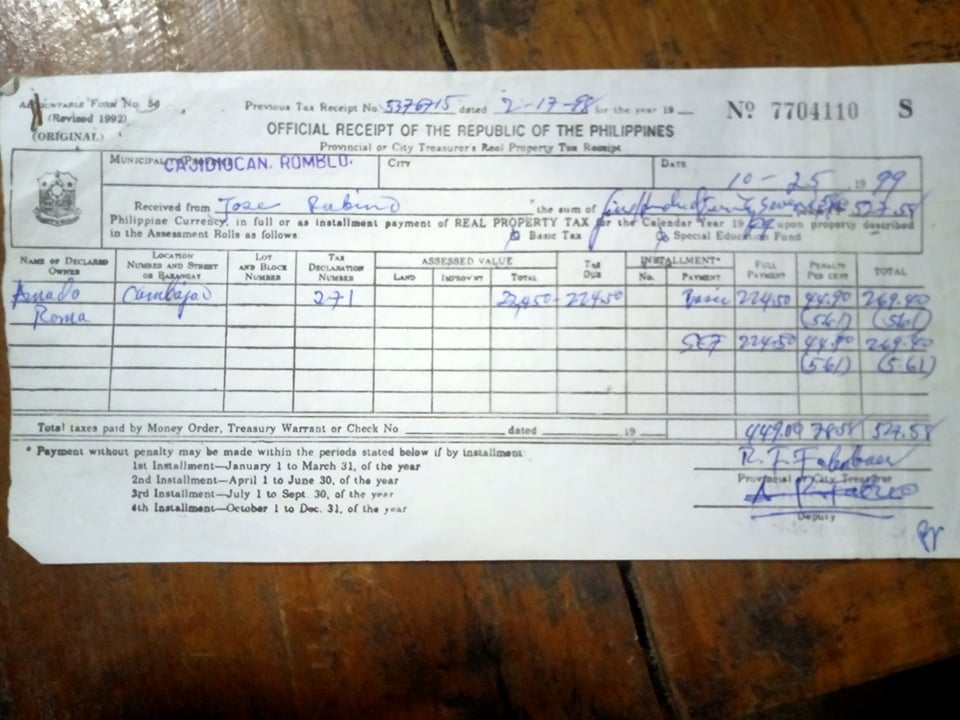 ACCOUNTABLE FORM NO. 54
(Revised 1992)
(ORIGINAL)
Previous Tax Receipt No. 5376715 dated 2-17-98 for the year 19
Nº 7704110 S
OFFICIAL RECEIPT OF THE REPUBLIC OF THE PHILIPPINES
Provincial or City Treasurer's Real Property Tax Receipt
CAJIDIOCAN, ROMBLO.
CITY
DATE
10-25, 1999
Received from Jose Rubino the sum of 527.58
Philippine Currency, in full or as installment payment of REAL PROPERTY TAX for the Calendar Year 1999 upon property described
in the Assessment Rolls as follows. Basic Tax Special Education Fund
NAME OF DECLARED OWNER LOCATION NUMBER AND STREET OR BARANGAY LOT AND BLOCK NUMBER TAX DECLARATION NUMBER ASSESSED VALUE LAND IMPROVMT TOTAL TAX DUE INSTALLMENT* No. PAYMENT FULL PAYMENT PENALTY PER CENT TOTAL
Cambajao 271 22450 224.50 Basic 224.50 44.90 269.40
Roma (5.61) (5.61)
SEF 224.50 44.90 269.40
(5.61) (5.61)
Total taxes paid by Money Order, Treasury Warrant or Check No. dated 19 449.00 78.58 527.58
* Payment without penalty may be made within the periods stated below if by installment
1st Installment—January 1 to March 31, of the year
2nd Installment—April 1 to June 30, of the year
3rd Installment—July 1 to Sept. 30, of the year
4th Installment—October 1 to Dec. 31, of the year
R. F.
Provincial or City Treasurer
Deputy